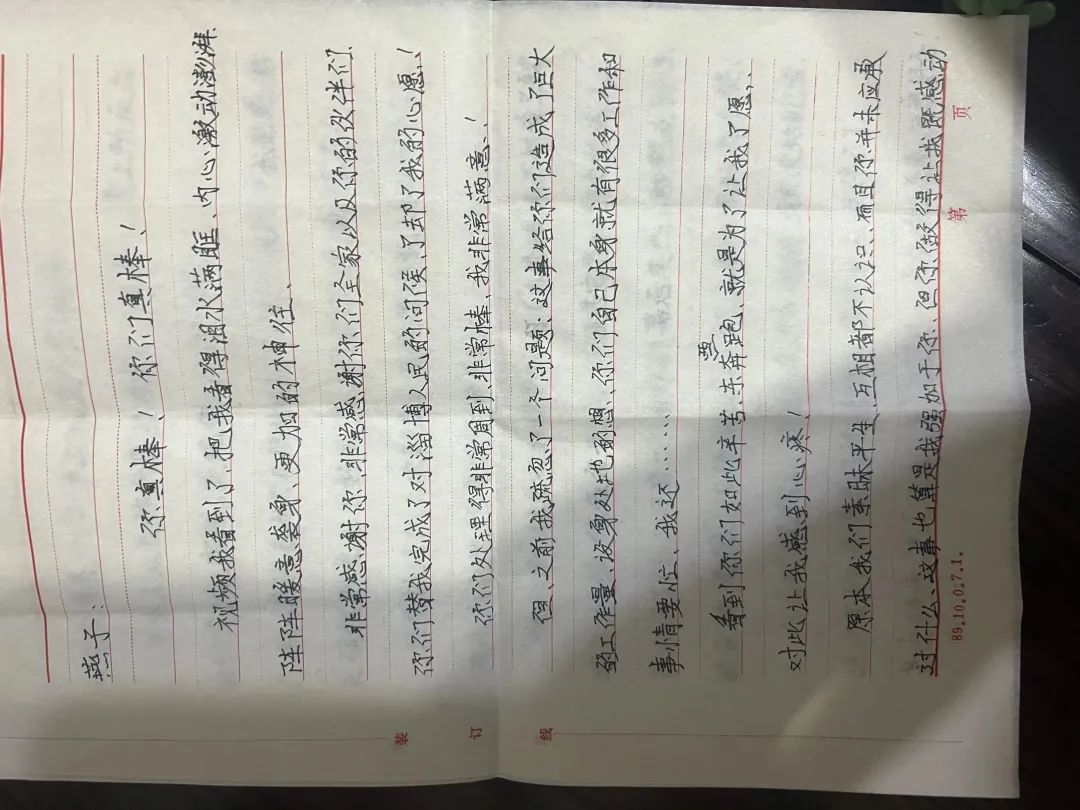 燕子：
你真棒！你们真棒！
视频我看到了、把我看得泪水满眶、内心激动澎湃
阵阵暖意袭身、更加的神往、
非常感谢你、非常感谢你们全家以及你的伙伴们
你们替我完成了对淄博人民的问侯、了却了我的心愿、！
你们处理得非常周到、非常棒、我非常满意、！
但、之前我疏忽了一个问题：这事给你们造成了巨大
的工作量、设身处地的想、你们自己本身就有很多工作和
事情要忙、我还……
看到你们如此辛苦、东奔西跑、就是为了让我了愿、
对此让我感到心疼！
原本我们素昧平生、互相都不认识、而且你并未应承
对什么、这事也算是我强加于你、但你做得让我既感动
89.10.0.7.1.
第 页
装 订 线